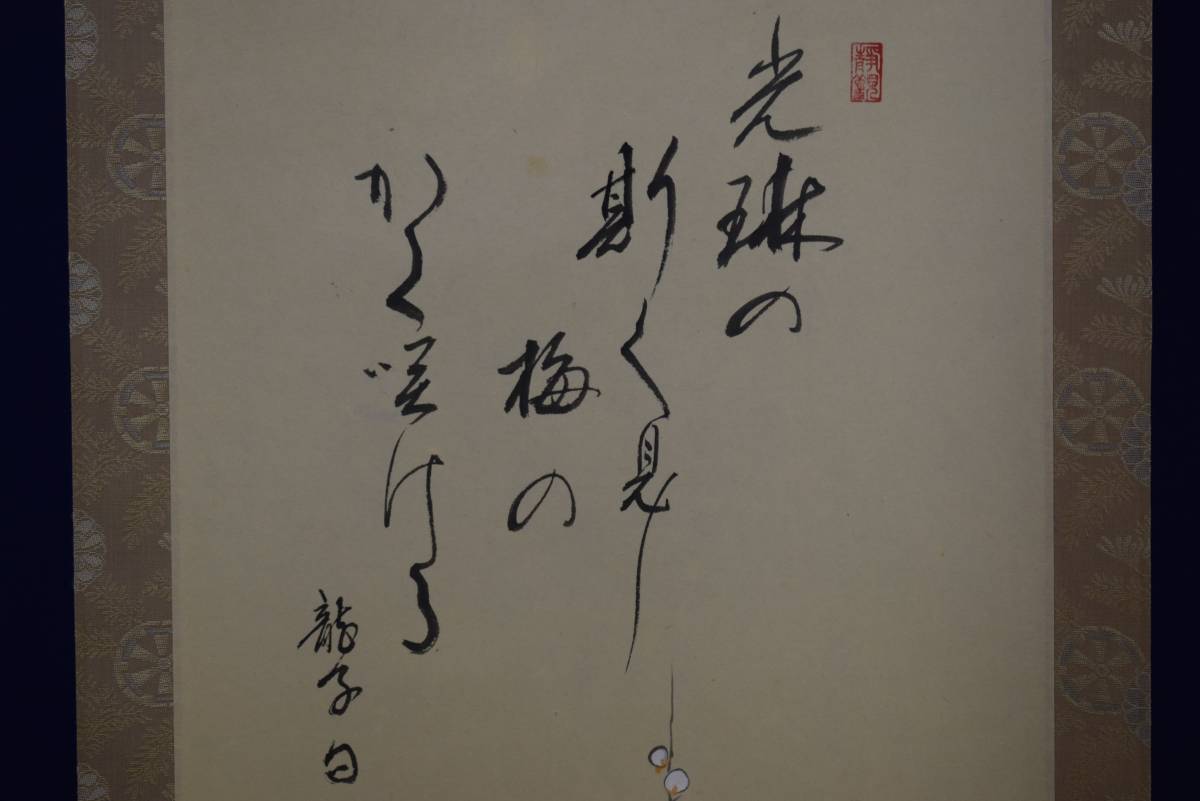 光琳の
斯く見し
梅の
かく咲ける
龍子句